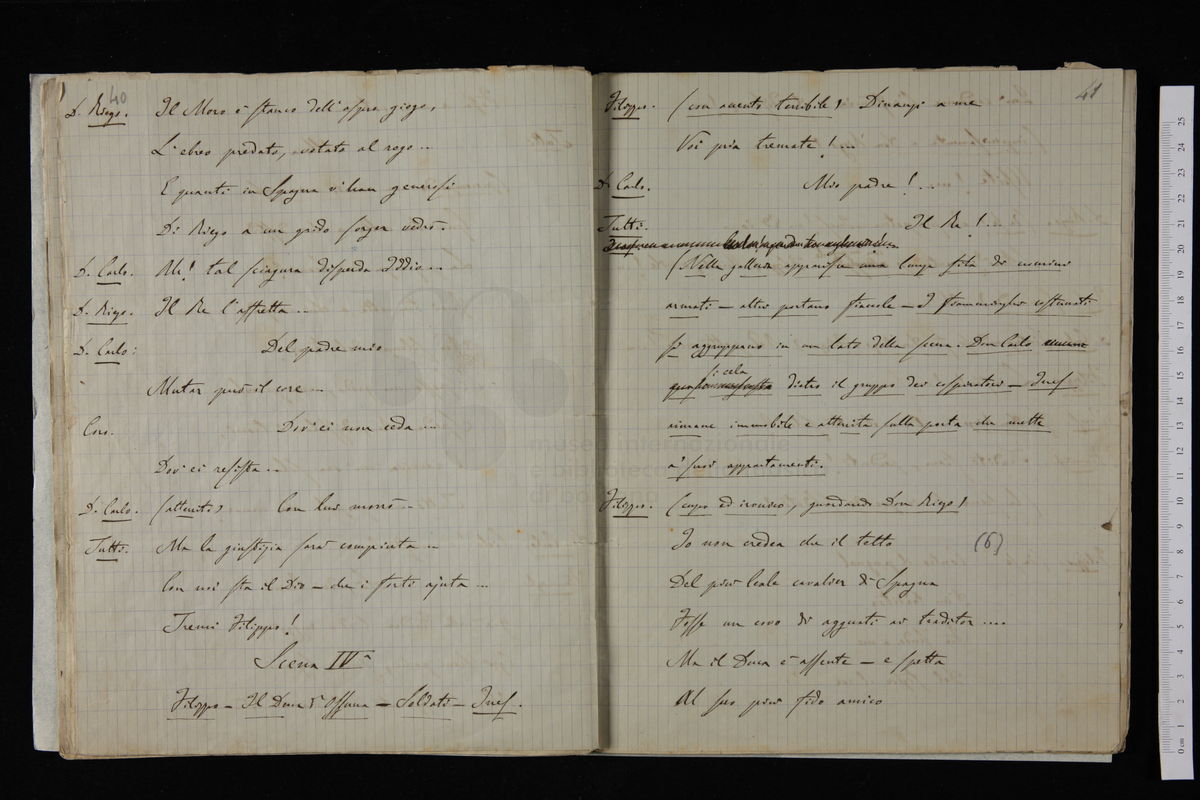 40
D. Riego. Il Moro è stanco dell'aspro giogo,
L'ebreo predato, votato al rogo...
E quanti in Spagna v'han generosi
Di Riego a un grido sorger vedrò.
D. Carlo. Ah! tal sciagura disperda Iddio...
D. Riego. Il Re l'affretta...
D. Carlo: Del padre mio
Mutar può il core...
Coro. Dovei non ceda...
Dov'ei resista...
D. Carlo. (atterrito) Con lui morrò...
Tutti. Ma la giustizia sarà compiuta...
Con noi sta il Dio - che i forti ajuta...
Tremi Filippo!
Scena IVa
Filippo - Il Duca d'Ossuna - Soldati - Inef.
41
Filippo. (con accento terribile) Dinanzi a me
Voi pria tremate!...
D. Carlo. Mio padre!...
Tutti. Il Re!...
(Nella galleria apparisce una lunga fila di uomini
armati - altri portano fiaccole - I framessighi costumati
si aggruppano in un lato della scena. Don Carlo
si cela
dietro il gruppo dei cospiratori - Inef
rimane immobile e atterrita sulla porta che mette
a' suoi appartamenti.
Filippo. (cupo ed ironico, guardando Don Riego)
Io non credea che il tetto (6)
Del più leale cavalier di Spagna
Fosse un covo di agguati ai traditor....
Ma il Duca è assente - e spetta
Al suo più fido amico
0 cm 1 2 3 4 5 6 7 8 9 10 11 12 13 14 15 16 17 18 19 20 21 22 23 24 25